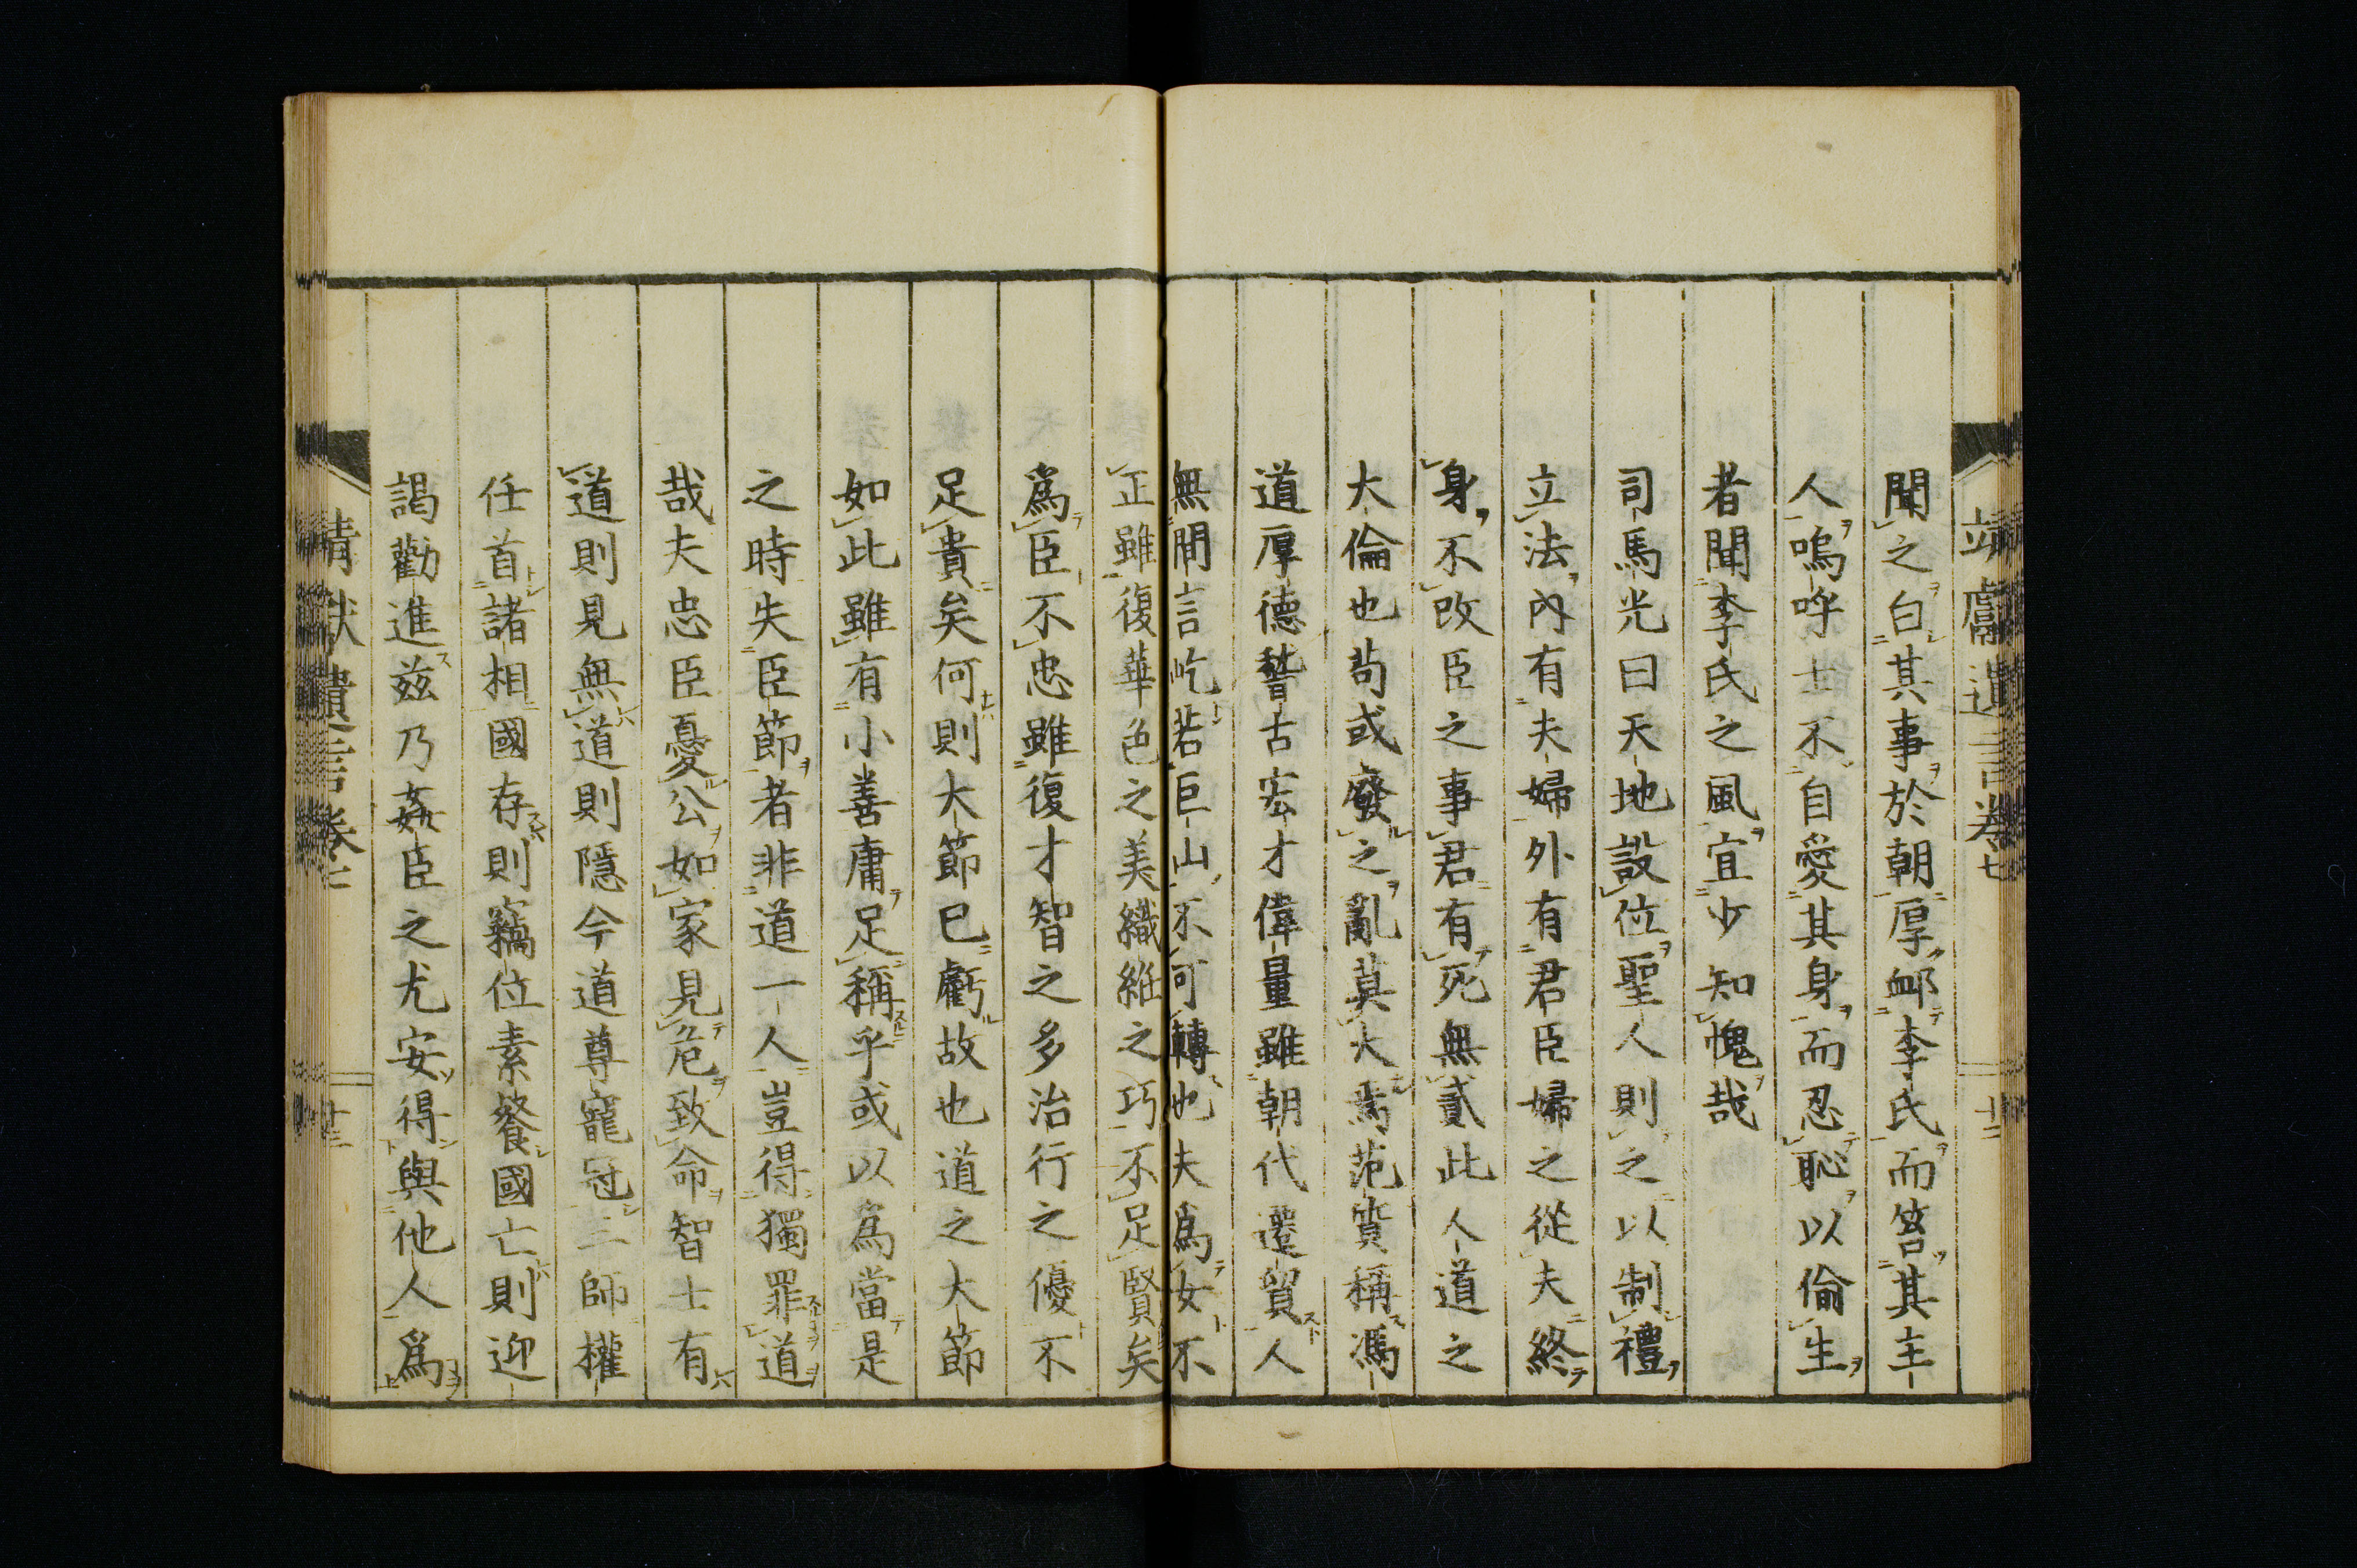 聞之白其事於朝厚卹李氏而笞其主
人嗚呼士不自愛其身而忍恥以偷生
者聞李氏之風宜少知愧哉
司馬光曰天地設位聖人則之以制禮
立法內有夫婦外有君臣婦之從夫終
身不改臣之事君有死無貳此人道之
大倫也苟或廢之亂莫大焉范質稱馮
道厚德稽古宏才偉量雖朝代遷貿人
無間言屹若巨山不可轉也夫爲女不
正雖復華色之美織紝之巧不足賢矣
爲臣不忠雖復才智之多治行之優不
足貴矣何則大節已虧故也道之大節
如此雖有小善庸足稱乎或以爲當是
之時失臣節者非道一人豈得獨罪道
哉夫忠臣憂公如家見危致命智士有
道則見無道則隱今道尊寵冠三師權
任首諸相國存則竊位素餐國亡則迎
謁勸進茲乃姦臣之尤安得與他人爲
靖獻遺言卷七